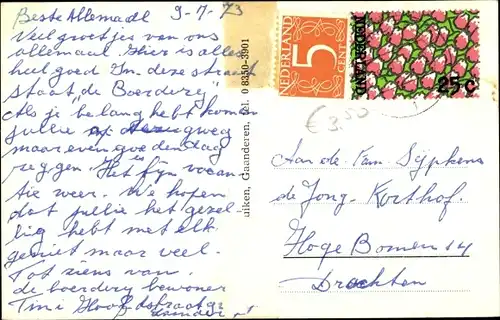 Beste Allemaal 9-7-73
Veel groetjes van ons
allemaal. Hier is alles
heel goed In deze straat
staat de Boerderij
Als je "belang hebt komen
jullie op terugweg
maar even goedendag
zeggen. Het is fijn vacan
tie weer. We hopen
dat jullie het gezel
lig hebt met elk
geniet maar veel.
Tot ziens van
de boerdery bewoner
Tini Hoofdstraat
uiken, Gaanderen, tel. 0 8350-3901
NEDERLAND 5 CENT
NEDERLAND 25c
€ 3.50
Aan de Fam. Sijpkens
de Jong-Korthof.
Hoge Bomen 14
Drachten